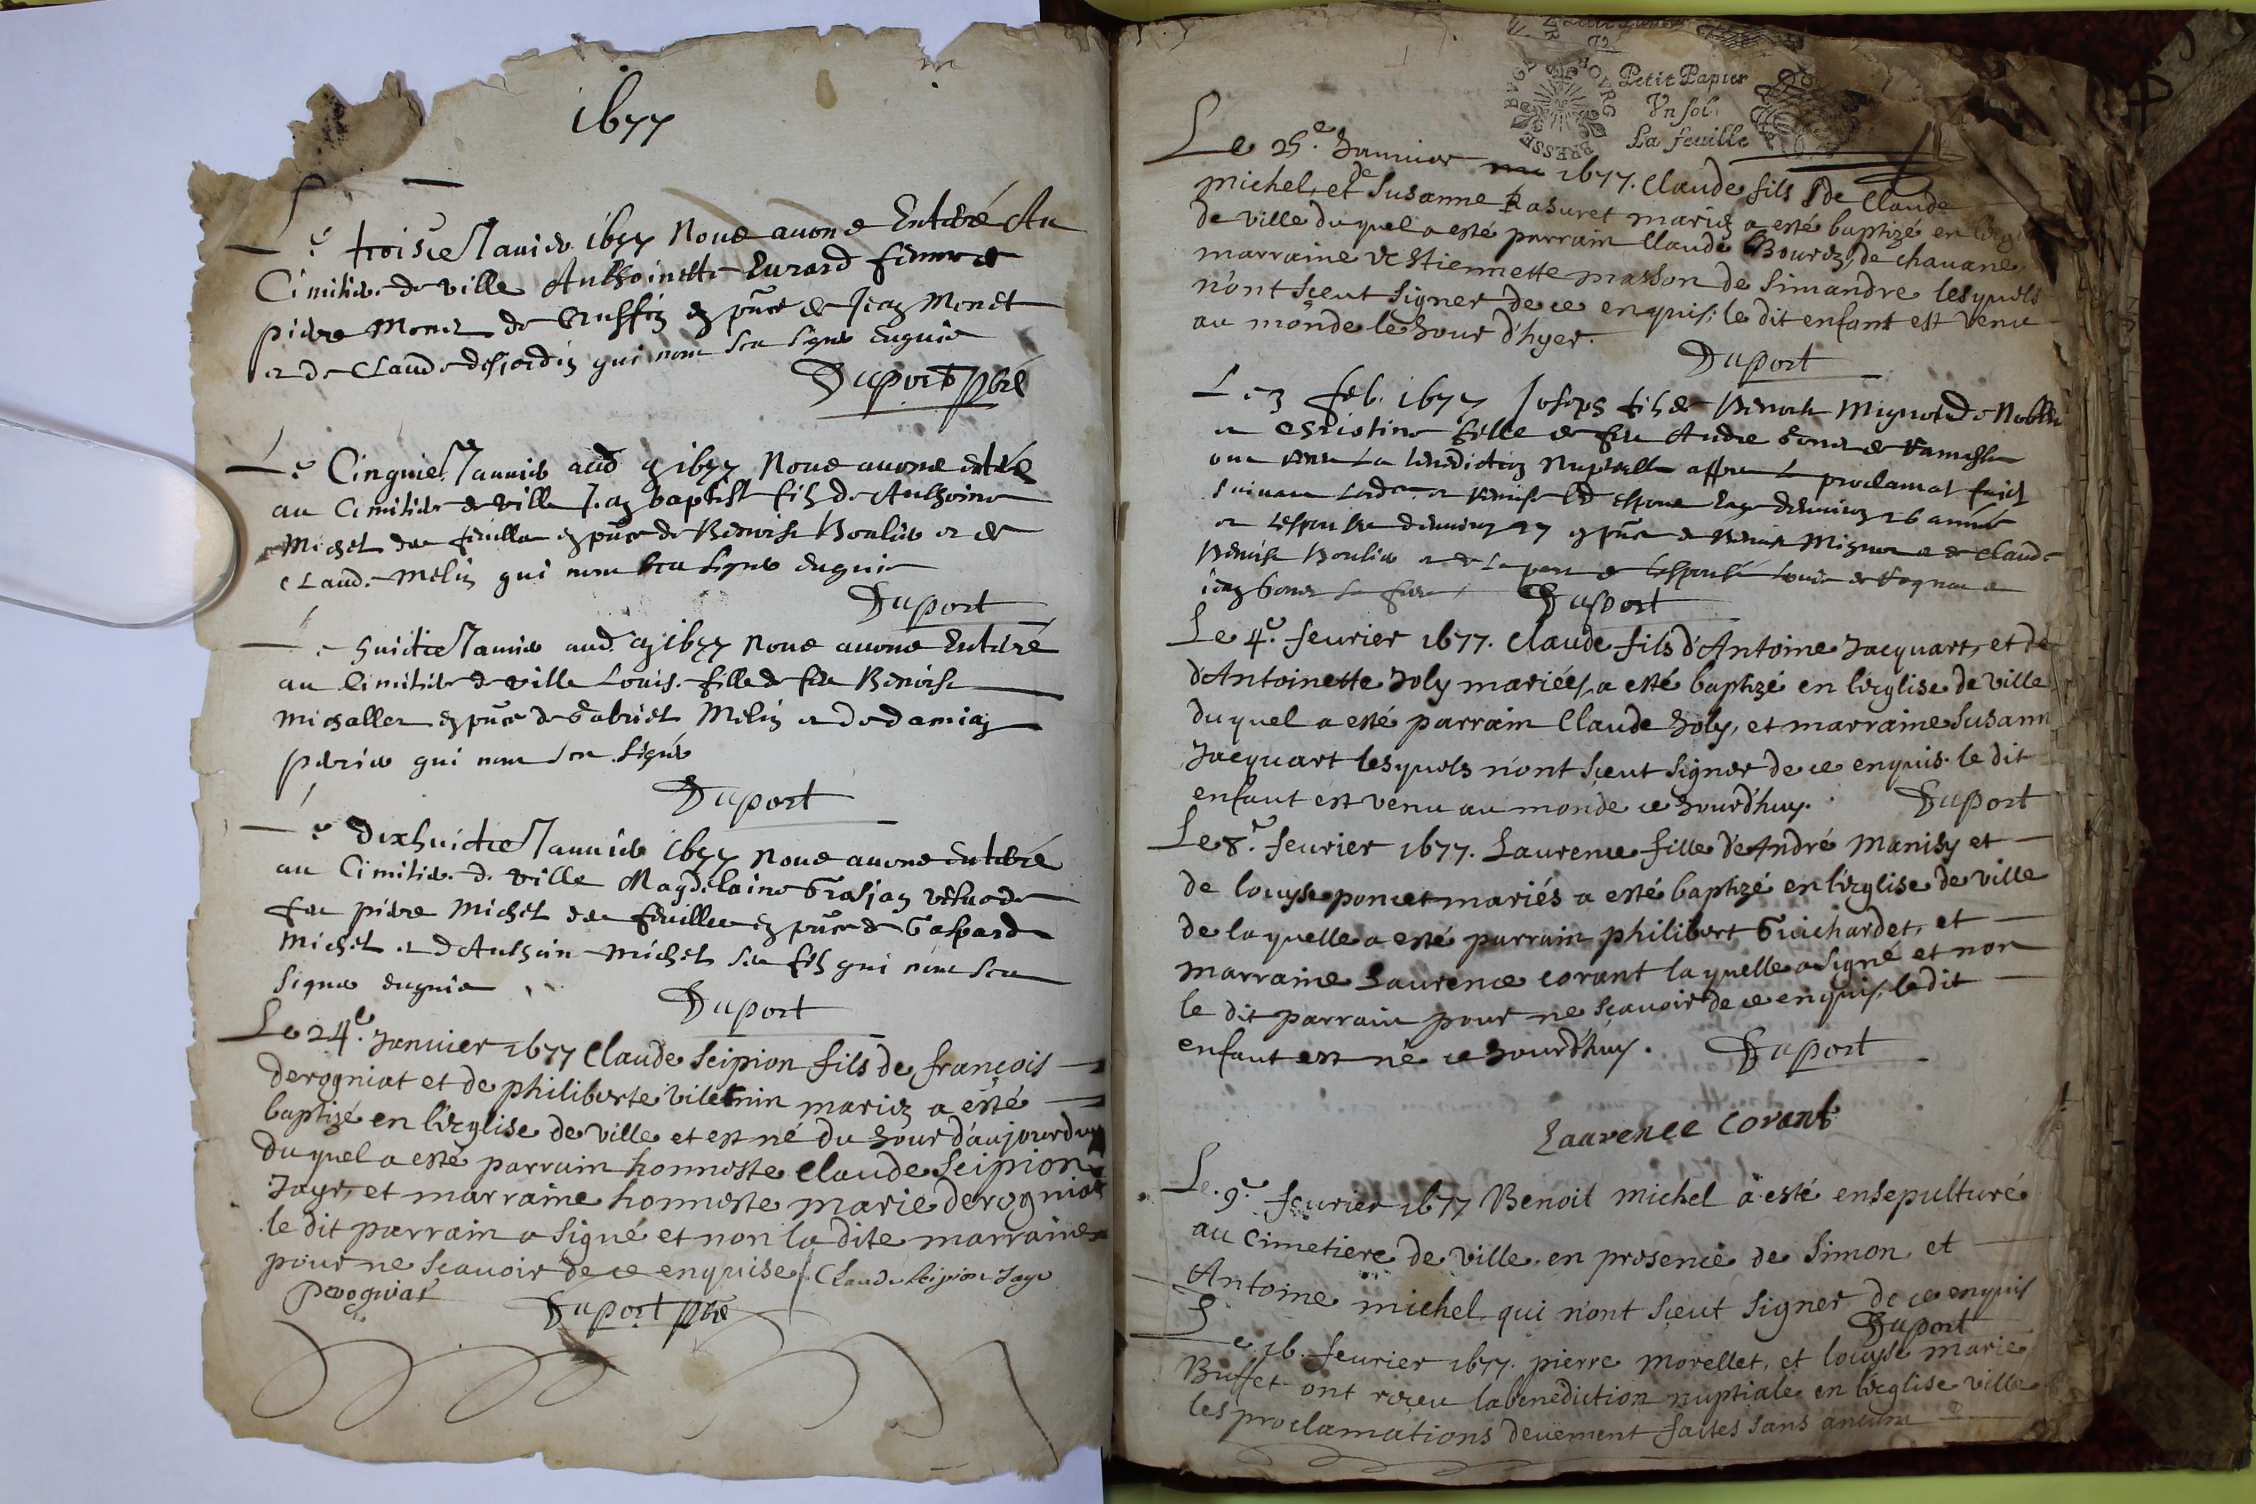 1677
Le troisie Janvier 1677 Nous avons Enterré Au
Cimitiere de ville Anthoinette Evrard femme de
pierre Monet de Cruffin en pnce de Jean Monet
et de Claude desjardin qui nont sceu signer enquis
Duport pbre
Le Cinquie Janvier aud an 1677 Nous avons enterré
au Cimitiere de ville Jean baptist fils de Anthoine
Michel de feuilla en pnce de Benoist Boulier et de
Claude Melin qui nont sceu signer enquis
Duport
Le huictie Janvier aud an 1677 Nous avons Enterré
au Cimitiere de ville Louise fille de feu Benoist
michallet en pnce de Gabriel Melin et de damian
perrier qui nont sceu signer
Duport
Le dixhuictie Janvier 1677 nous avons enterré
au Cimitiere de ville Magdelaine Grosjan vefve de
feu pierre Michel de feuillee en pnce de Gaspard
Michel et d'Anthoine Michel son fils qui nont sceu
signer enquis
Duport
Le 24e. Janvier 1677 Claude Scipion fils de françois
derogniat et de philiberte vilemin mariez a esté
baptizé en l'église de ville et est né du Jour d'aujourdhuy
duquel a esté parrain honneste Claude Scipion
Jayr, et marraine honneste marie derogniat
le dit parrain a signé et non la dite marraine
pour ne sçavoir de ce enquise / Claude Scipion Jayr
Derogniat
Duport pbre
Petit Papier
Vn sol
La feuille
BRESSE BVGEY
BOVRG
Le 25e. Janvier 1677. Claude fils de Claude
michel, et de Susanne Rasuret mariez a esté baptizé en l'egl
de ville duquel a esté parrain Claude Bourez, de chavane
marraine Estiennette masson de Simandre lesquels
n'ont sçeut signer de ce enquis; le dit enfant est venu
au monde le Jour d'hyer.
Duport
Le 3 feb. 1677 Joseph fils de Benoist Mignot de Noblen
et Christine fille de feu Andre Gonet de Ramasse
ont receu La benediction Nuptialle appres La proclamat faict
suivant Lordon et Remise led espoux eage denviron 26 année
et Lespouse denviron 27 en pnce de Benoist Mignot et de Claude
Benoist Boulier et de La part de Lespouse Louis de Rognat et
jean Gonet Le frere
Duport
Le 4e. fevrier 1677. Claude fils d'Antoine Jacquart, et de
d'Antoinette Joly mariées a esté baptizé en l'eglise de ville
duquel a esté parrain Claude Joly, et marraine Susann
Jacquart lesquels n'ont sçeut signer de ce enquis. le dit
enfant est venu au monde ce Jourd'huy. Duport
Le 8e. fevrier 1677. Laurence fille d'André Manisy et
de louyse poncet mariés a esté baptizé en l'eglise de ville
de laquelle a esté parrain philibert Guichardet, et
marraine Laurence corant laquelle a signé et non
le dit parrain pour ne sçavoir de ce enquis, le dit
enfant est né ce Jourd'huy. Duport
Laurence corant
Le. 9e. fevrier 1677 Benoit michel a esté ensepulturé
au cimetiere de ville en presence de Simon et
Antoine michel qui n'ont sçeut signer de ce enquis
Duport
Le 16. fevrier 1677. pierre Morellet, et louyse marie
Buffet ont reçeu la benediction nuptiale en l'eglise ville
les proclamations deuement faites sans aucune